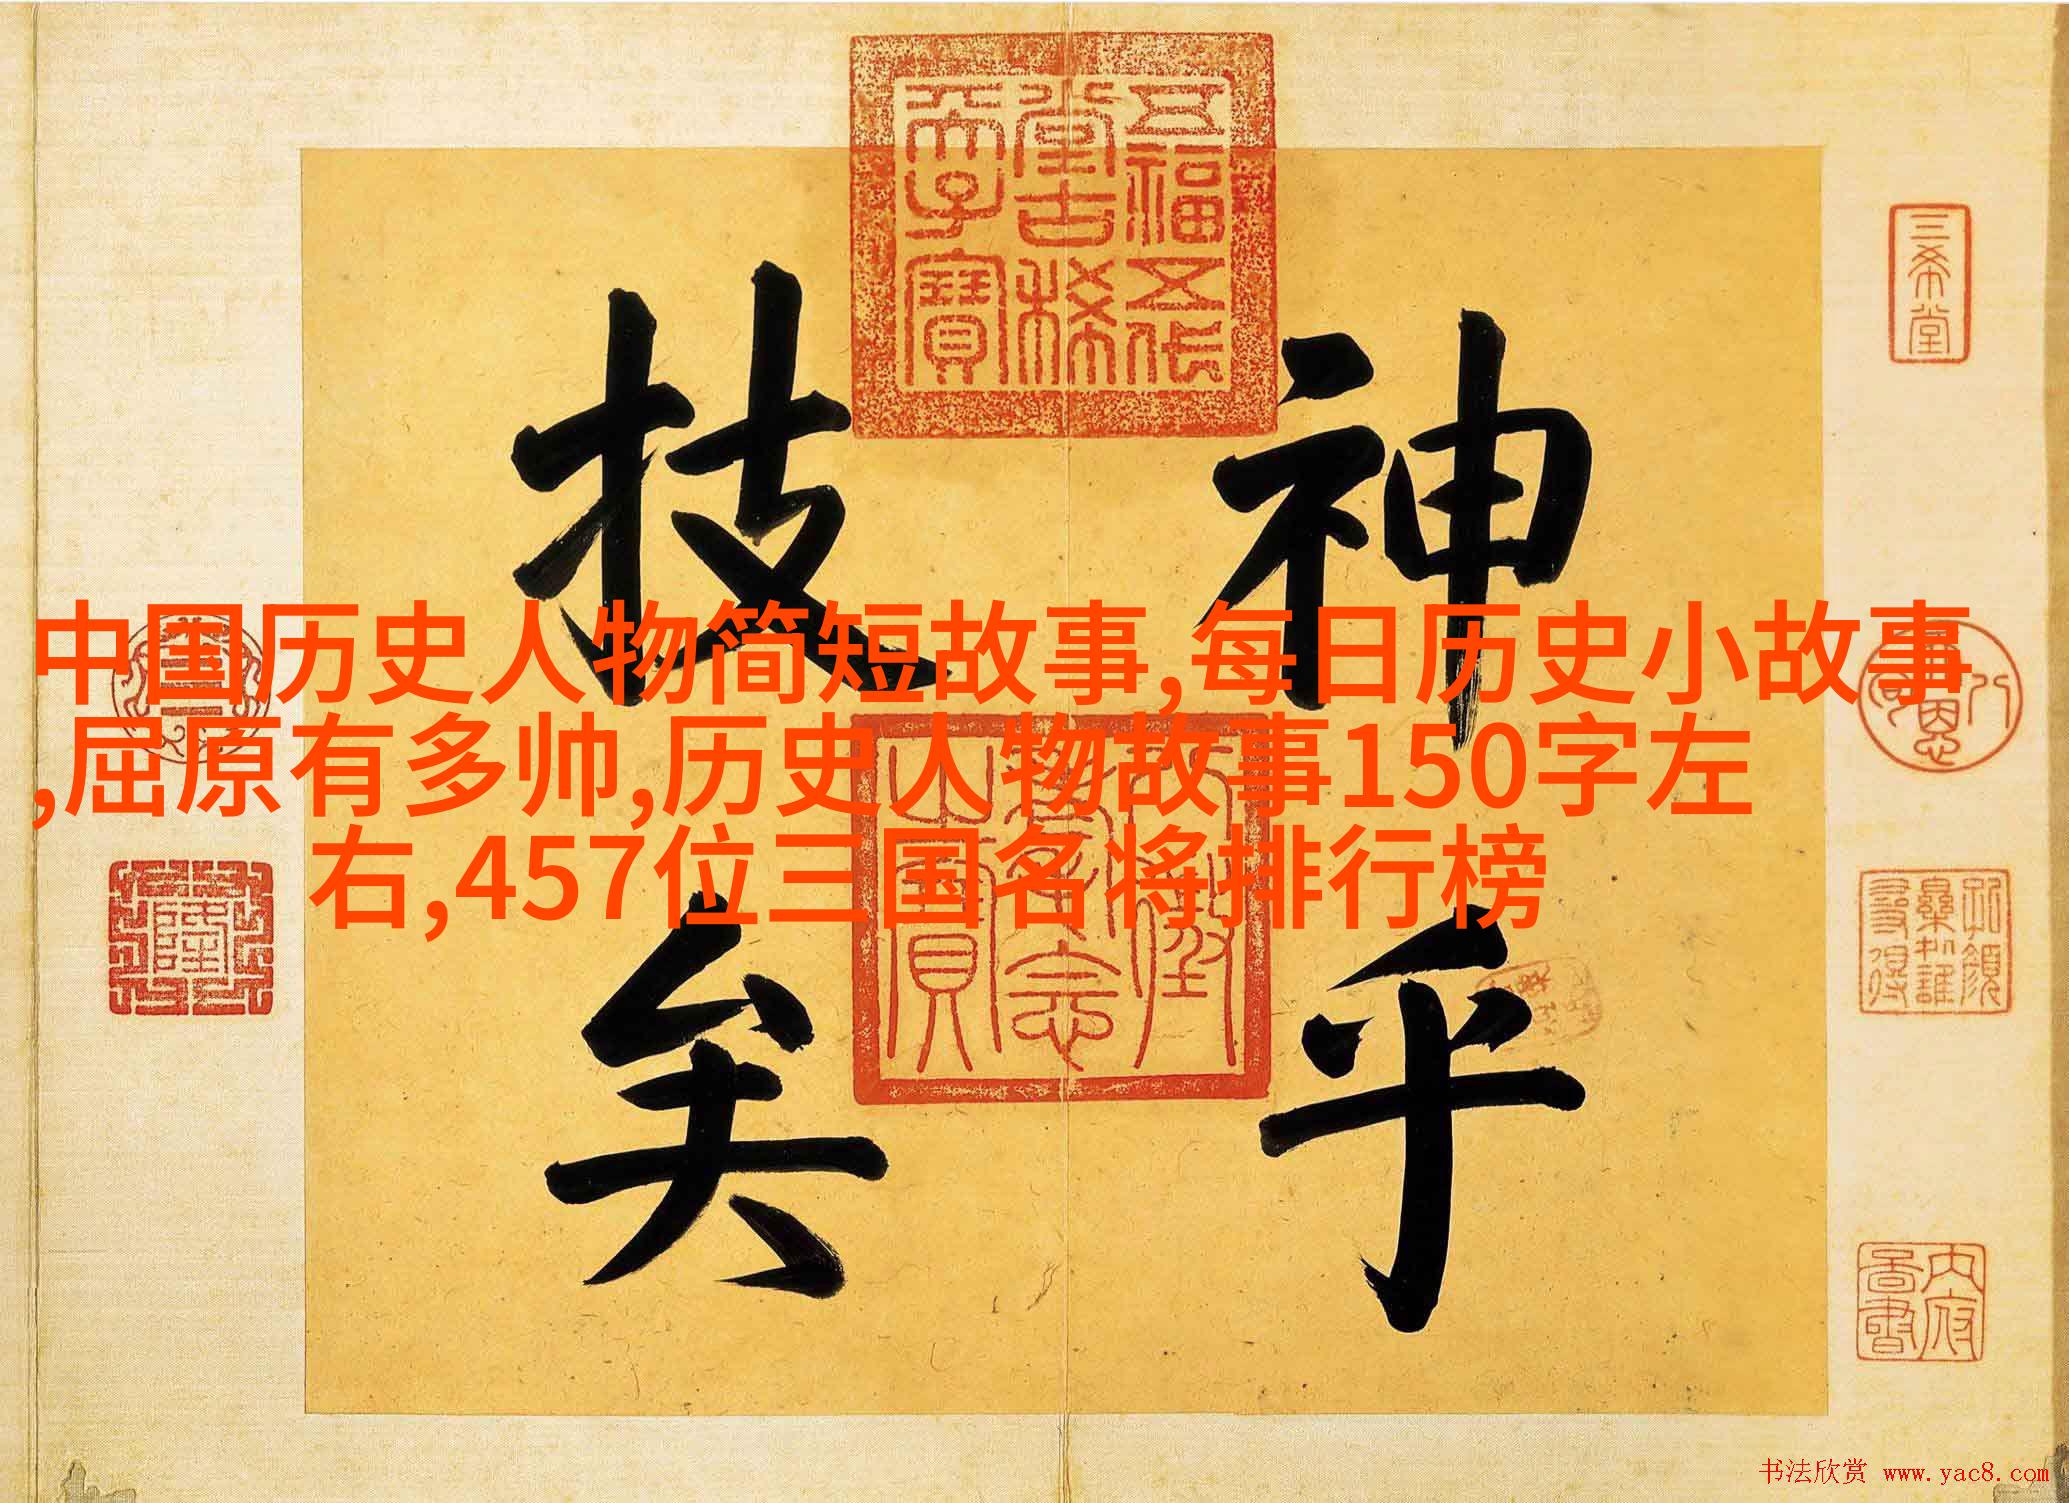 神乎
技矣
中国历史人物简短故事,每日历史小故事
,屈原有多帅,历史人物故事150字左
右,457位三国名将排行榜
五福五代
堂古稀
天子寶
三希堂
书法欣赏 www.yac8.com